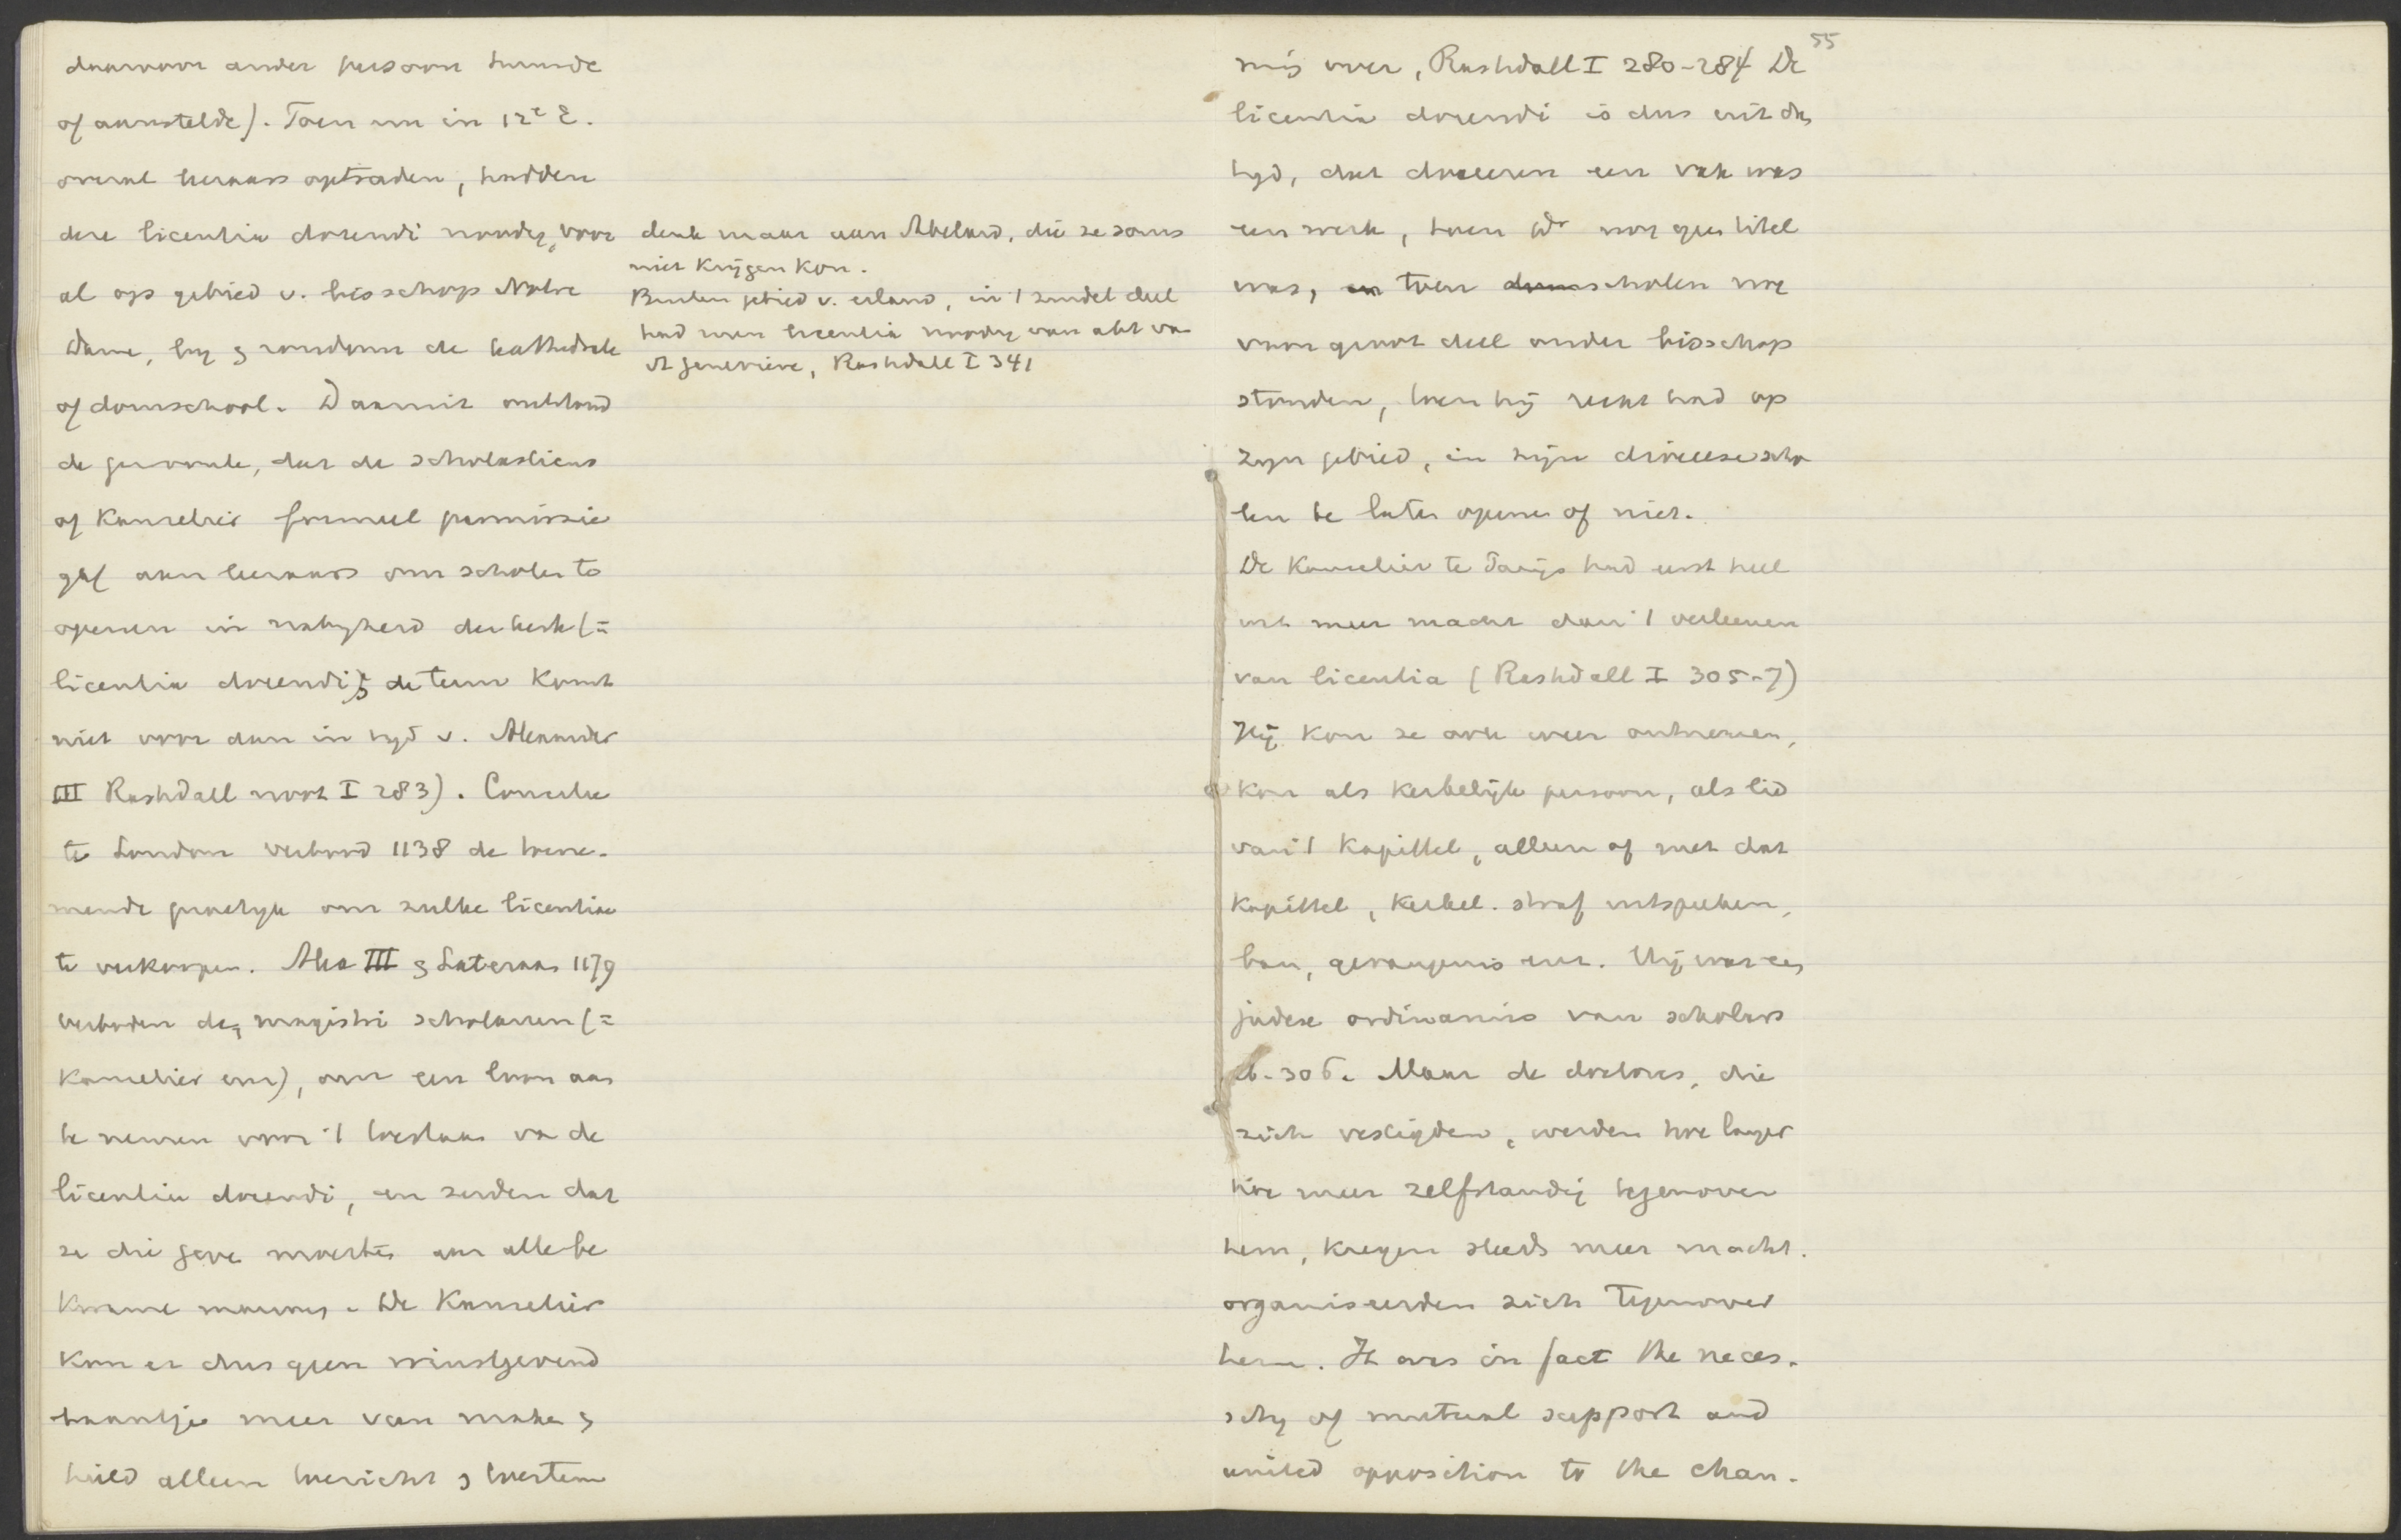 daarvoor ander persoon huurde
of aanstelde). Toen nu in 12e E.
overal leeraars optraden, hadden
deze licentia docendi noodig, voor
al op gebied v. bisschop Notre
Dame, bij & rondom de kathedrale
of domschool. Daaruit ontstond
de gewoonte, dat de scholasticus
of Kanselier formeel permissie
gaf aan leeraars om scholen te
openen in nabijheid der kerk (=
licentia docendi & de term komt
niet voor dan in tijd v. Alexander
III Rashdall noot I 283). Concilie
te London verbood 1138 de toene-
mende practijk om zulke licentiae
te verkoopen. Alex III & Lateraan 1179
verboden den magistri scholarum (=
Kanselier enz), om een loon aan
te nemen voor 't toestaan va de
licentia docendi, en zeiden dat
ze die geve moesten aan alle be
kwame mannen. De Kanselier
kon er dus geen winstgevend
baantje meer van make &
hield alleen toezicht & toestem
denk maar aan Abelard, die ze soms
niet krijgen kon.
Buiten gebied v. eiland, in 't zuidel deel
had men licentia noodig van abt va
St Geneviève, Rashdall I 341
55
ming over, Rashdall I 280-284 De
licentia docendi is dus uit den
tijd, dat doceeren een vak was
een werk, toen Dr nog geen titel
was, en toen domscholen nog
voor groot deel onder bisschop
stonden, toen hij recht had op
zijn gebied, in zijn diocese scho
len te laten openen of niet.
De Kanselier te Parijs had eerst heel
wat meer macht dan 't verleenen
van licentia (Rashdall I 305-7)
Hij kon ze ook weer ontnemen,
kon als kerkelijk persoon, als lid
van 't Kapittel, alleen of met dat
Kapittel, kerkel. straf uitspreken,
ban, gevangenis enz. Hij was een
judex ordinarius van scholars
ib. 306. Maar de doctores, die
zich vestigden, werden hoe langer
hoe meer zelfstandig tegenover
hem, kregen steeds meer macht.
organiseerden zich tegenover
hem. It was in fact the neces-
sity of mutual support and
united opposition to the chan-